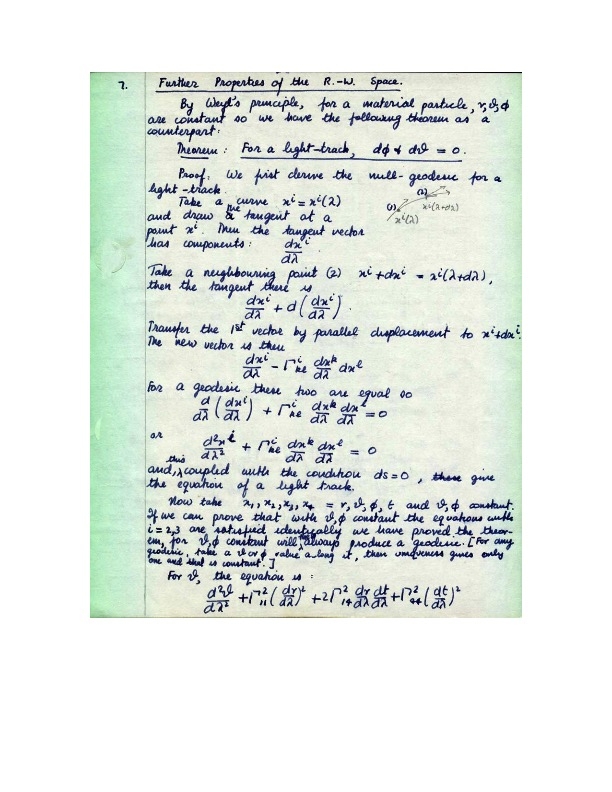 7. Further Properties of the R.-W. Space.
By Weyl's principle, for a material particle, r, ϑ, ϕ
are constant so we have the following theorem as a
counterpart:
Theorem: For a light-track, dϕ & dϑ = 0.
Proof: We first derive the null-geodesic for a
light-track.
Take a curve xⁱ = xⁱ(λ)
and draw the tangent at a
point xⁱ. Then the tangent vector
has components: dxⁱ/dλ
(1) xⁱ(λ) (2) xⁱ(λ+dλ)
Take a neighbouring point (2) xⁱ+dxⁱ = xⁱ(λ+dλ),
then the tangent there is
dxⁱ/dλ + d(dxⁱ/dλ).
Transfer the 1st vector by parallel displacement to xⁱ+dxⁱ.
The new vector is then
dxⁱ/dλ - Γⁱₖₗ dxᵏ/dλ dxˡ
For a geodesic these two are equal so
d/dλ (dxⁱ/dλ) + Γⁱₖₗ dxᵏ/dλ dxˡ/dλ = 0
or
d²xⁱ/dλ² + Γⁱₖₗ dxᵏ/dλ dxˡ/dλ = 0
and, this coupled with the condition ds = 0, these give
the equation of a light track.
Now take x₁, x₂, x₃, x₄ = r, ϑ, ϕ, t and ϑ, ϕ constant.
If we can prove that with ϑ, ϕ constant the equations with
i = 2,3 are satisfied identically we have proved the theor-
em, for ϑ, ϕ constant will always produce a geodesic. [For any
geodesic, take a ϑ or ϕ value along it, then uniqueness gives only
one and that is constant.]
For ϑ, the equation is:
d²ϑ/dλ² + Γ²₁₁ (dr/dλ)² + 2Γ²₁₄ dr/dλ dt/dλ + Γ²₄₄ (dt/dλ)²